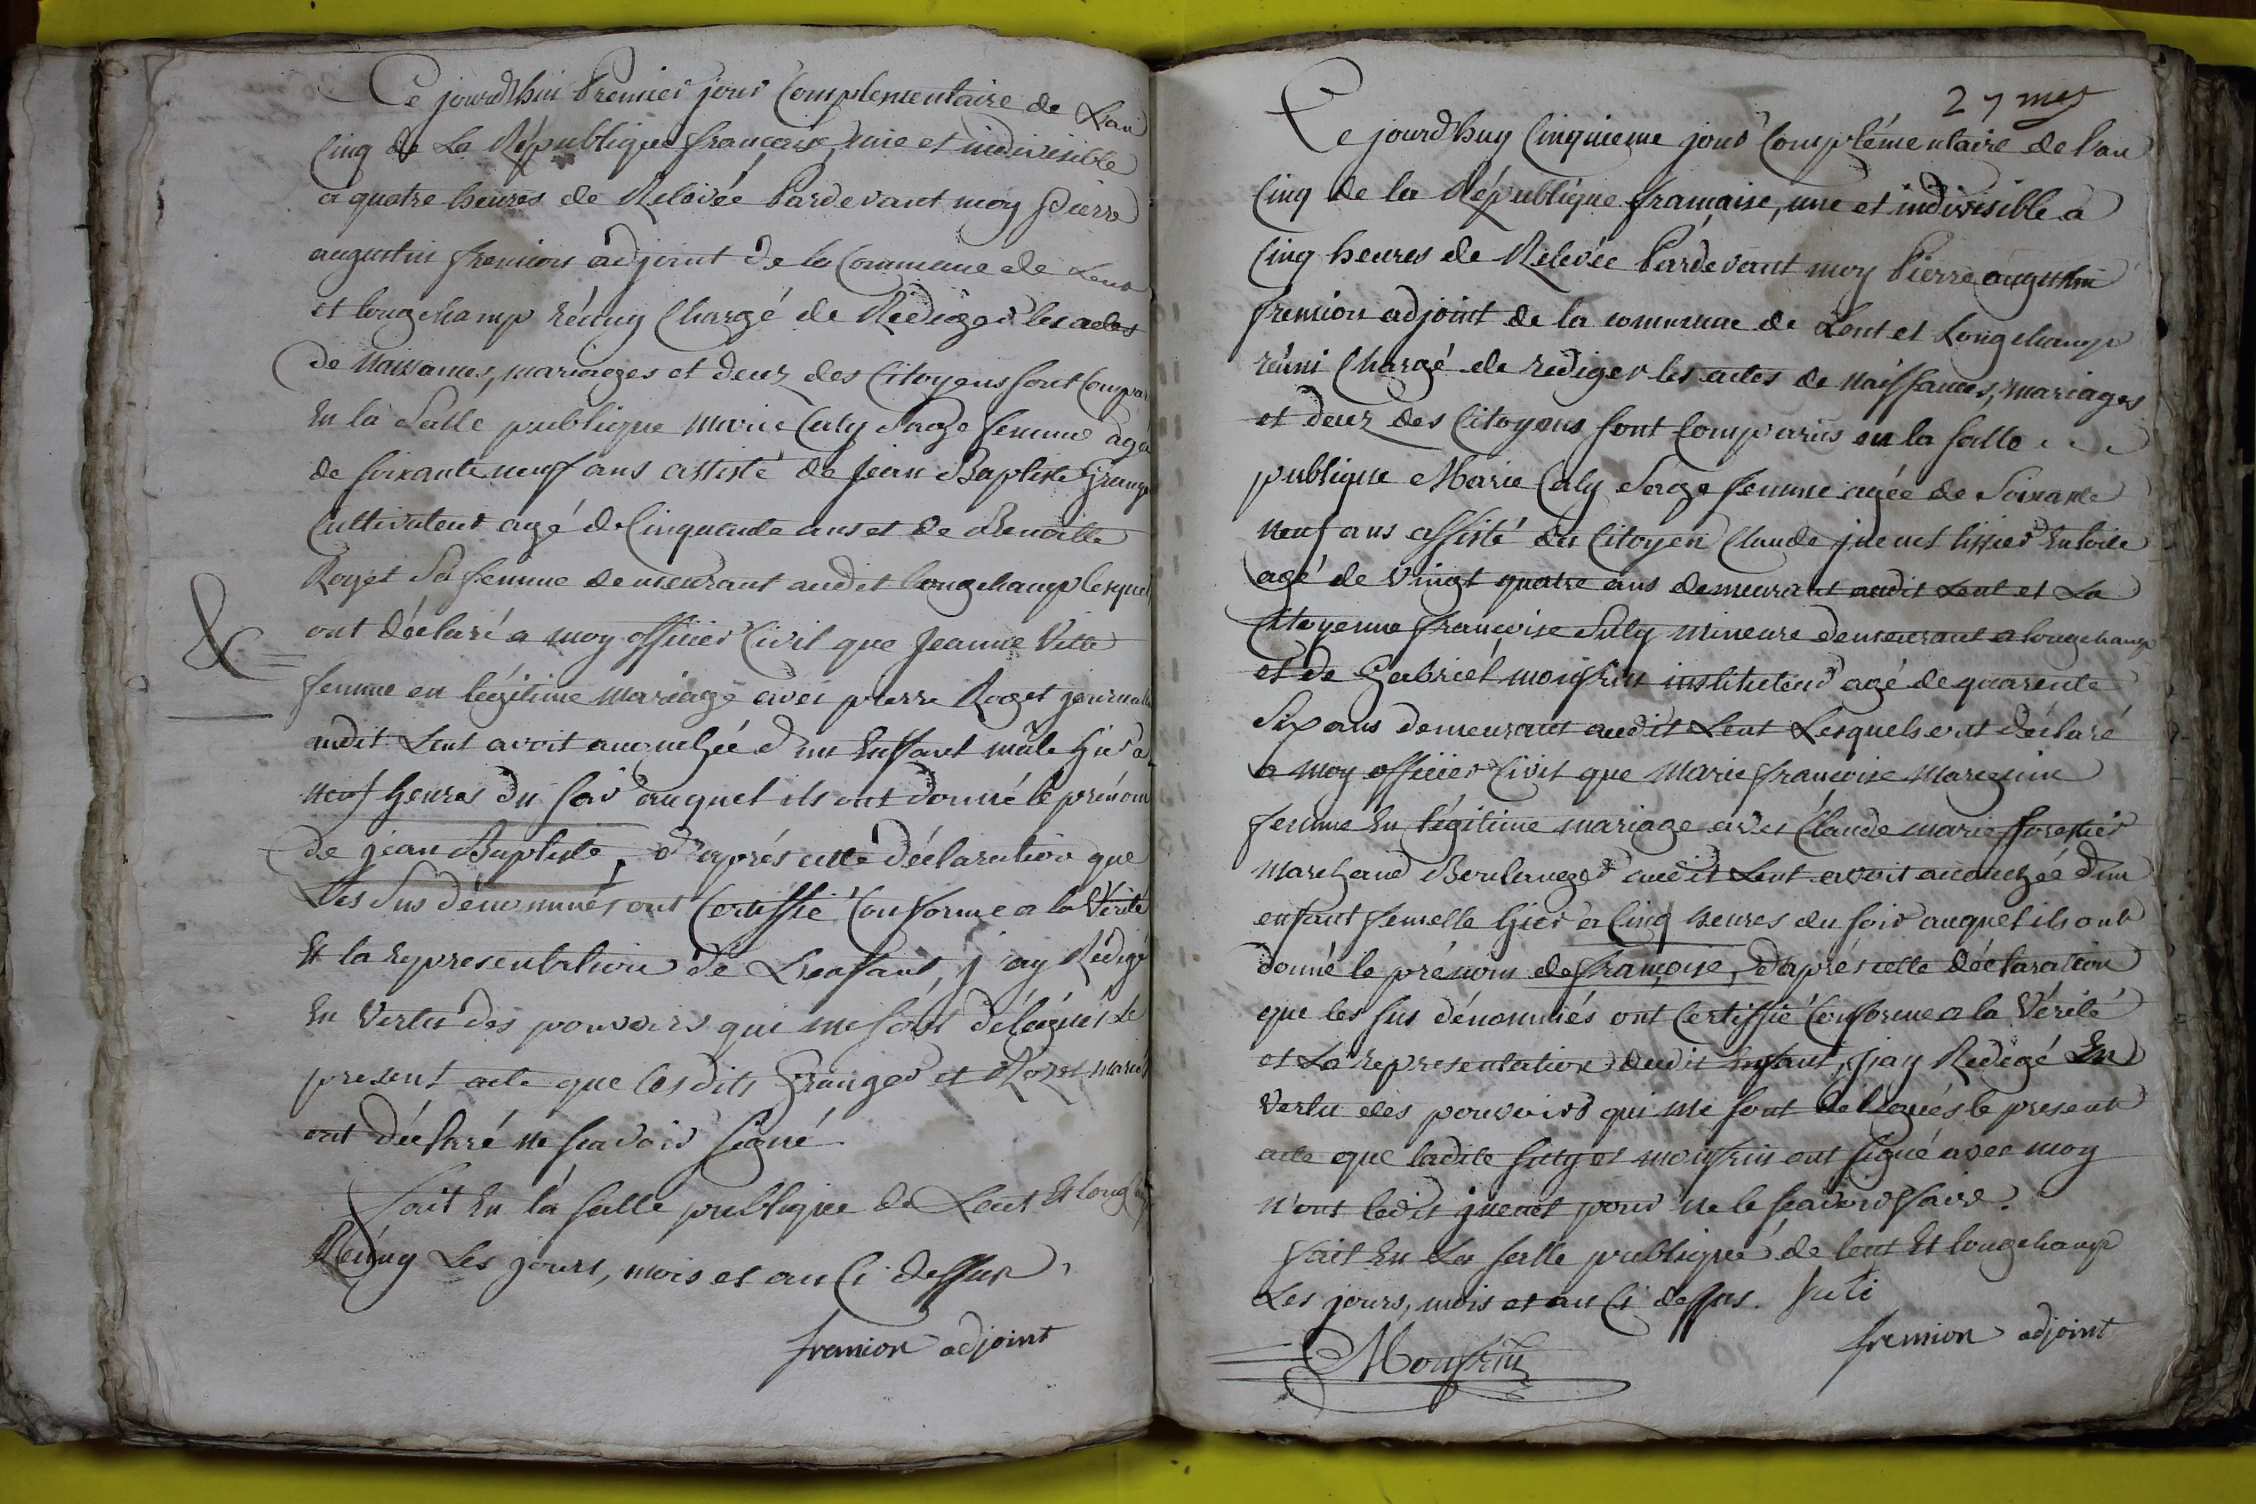 Ce jourdhui Premier jour Complementaire de Lan
Cinq de La République francaise, une et indivisible
a quatre heures de Relevée Pardevant moy Pierre
augustin fremion adjoint de la Commune de Lent
et longchamp réuny Chargé de Rédiger les actes
de Naissances, mariages et deces des Citoyens sont Compar
En la Salle publique marie Caly Sage femme agé
de soixante neuf ans assisté de Jean Baptiste Granger
Cultivateur agé de Cinquante ans et de Benoitte
Rozet Sa femme demeurant audit longchamp lesquels
ont déclaré a moy officier Civil que Jeanne Vette
femme en légitime mariage avec pierre Roget
audit Lent avoit accouchée d'un Enfant mâle hier a
neuf heures du soir auquel ils ont donné le prénom
de jean Baptiste, d'aprés cette déclaration que
Les Sus dénommés ont Certiffié Conforme a la Vérité
Et la representation de L'enfant, j'ay Rédigé
En Vertu des pouvoirs qui me sont délégués Le
present acte que lesdits Granger et Rozet mariés
ont déclaré ne scavoir signé
fait En la salle publique de Lent Et longchamp
Réuny Les jours, mois et an Ci dessus,
fremion adjoint
27 mes
Ce jourdhuy Cinquieme jour Complémentaire de l'an
Cinq de la République française, une et indivisible a
Cinq heures de Relevée Pardevant moy Pierre augustin
fremion adjoint de la commune de Lent et Longchamp
réuni Chargé de rediger les actes de naissances, mariages
et deces des Citoyens sont Comparus en la salle
publique Marie Caly Sage femme agée de Soixante
neuf ans assisté du Citoyen Claude juenet tissier En toile
agé de vingt quatre ans demeurant audit Lent et La
Citoyenne françoise Suty mineure demeurant a longchamp
et de Gabriel monfrin instituteur agé de quarente
Six ans demeurant audit Lent Lesquels ont déclaré
a moy officier Civil que Marie françoise Marguin
femme En légitime mariage avec Claude marie fforestier
marchand Boulanger audit Lent avoit accouchée d'un
enfant femelle hier a Cinq heures du soir auquel ils ont
donné le prénom de françoise, d'aprés cette déclaration
que les sus dénommés ont Certiffié Conforme a la Vérité
et La representation dudit Enfant, j'ay Redigé En
Vertu des pouvoirs qui me sont délégués le present
acte que ladite suty et monfrin ont signé avec moy
n'ont ledit juenet pour ne le scavoir faire.
fait En La salle publique de lent Et longchamp
Les jours, mois et an Ci dessus. Suti
fremion adjoint
Monfrin